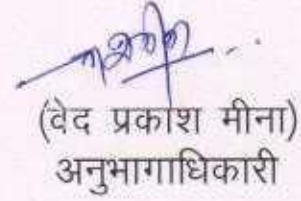 (वेद प्रकाश मीना)
अनुभागाधिकारी